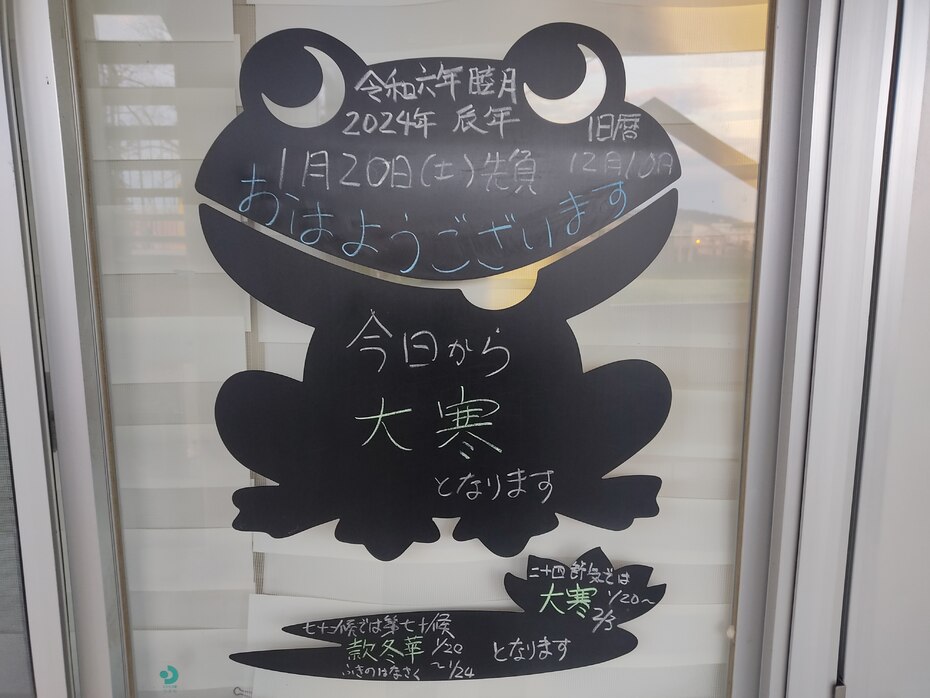 令和六年睦月
2024年 辰年
旧暦
12月10日
1月20日(土)先負
おはようございます
今日から
大寒
となります
二十四節気では
大寒 1/20~
2/3
七十二候では第七十候
款冬華 1/20
ふきのはなさく ~1/24
となります